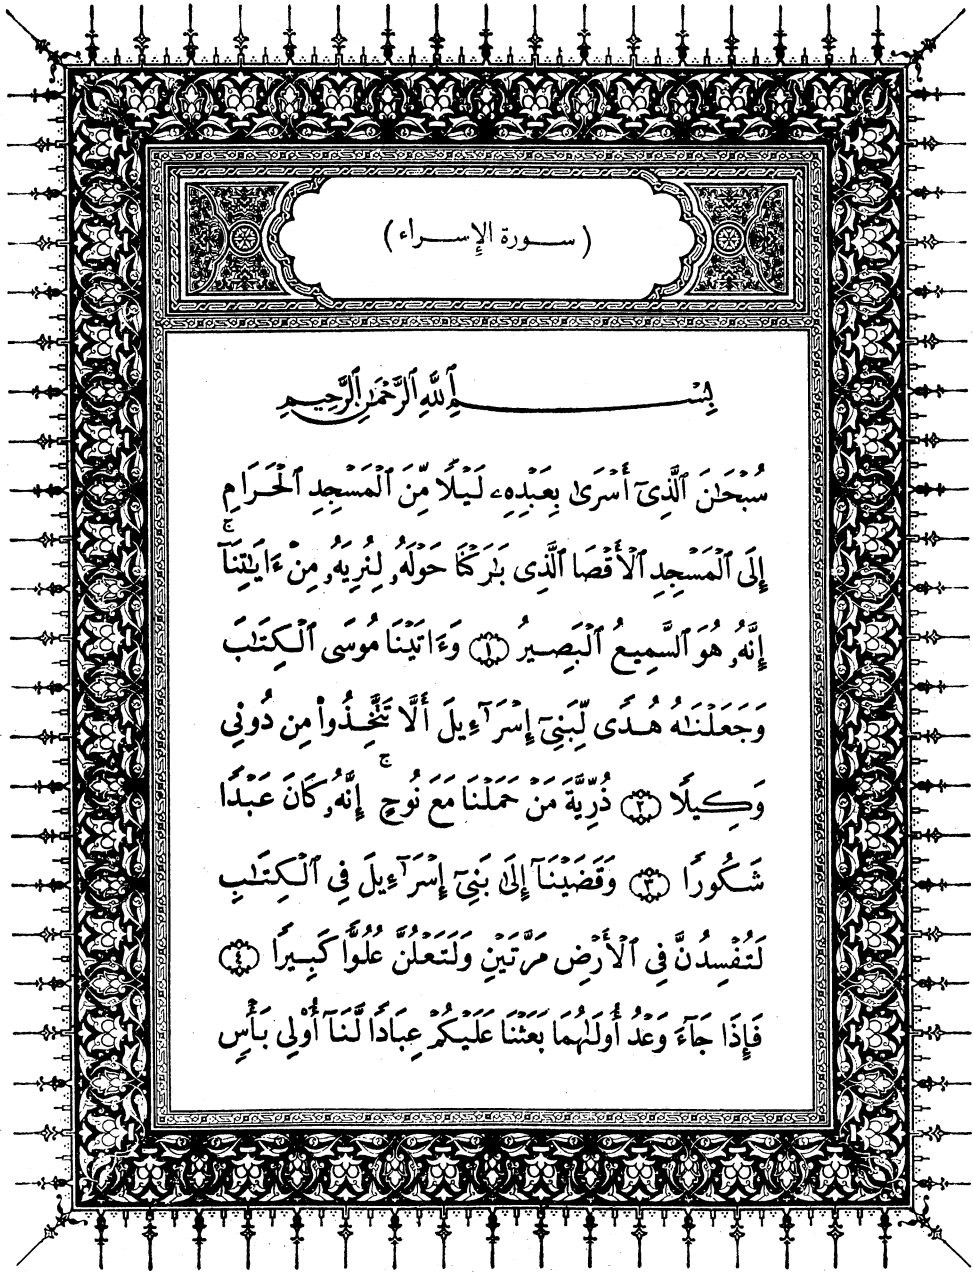 ( سورة الإسراء )
بِسْمِ ٱللَّهِ ٱلرَّحْمَٰنِ ٱلرَّحِيمِ
سُبْحَٰنَ ٱلَّذِىٓ أَسْرَىٰ بِعَبْدِهِۦ لَيْلًا مِّنَ ٱلْمَسْجِدِ ٱلْحَرَامِ
إِلَى ٱلْمَسْجِدِ ٱلْأَقْصَا ٱلَّذِى بَٰرَكْنَا حَوْلَهُۥ لِنُرِيَهُۥ مِنْ ءَايَٰتِنَآۚ
إِنَّهُۥ هُوَ ٱلسَّمِيعُ ٱلْبَصِيرُ ۝١ وَءَاتَيْنَا مُوسَى ٱلْكِتَٰبَ
وَجَعَلْنَٰهُ هُدًى لِّبَنِىٓ إِسْرَٰٓءِيلَ أَلَّا تَتَّخِذُوا۟ مِن دُونِى
وَكِيلًا ۝٢ ذُرِّيَّةَ مَنْ حَمَلْنَا مَعَ نُوحٍۚ إِنَّهُۥ كَانَ عَبْدًا
شَكُورًا ۝٣ وَقَضَيْنَآ إِلَىٰ بَنِىٓ إِسْرَٰٓءِيلَ فِى ٱلْكِتَٰبِ
لَتُفْسِدُنَّ فِى ٱلْأَرْضِ مَرَّتَيْنِ وَلَتَعْلُنَّ عُلُوًّا كَبِيرًا ۝٤
فَإِذَا جَآءَ وَعْدُ أُولَىٰهُمَا بَعَثْنَا عَلَيْكُمْ عِبَادًا لَّنَآ أُو۟لِى بَأْسٍ